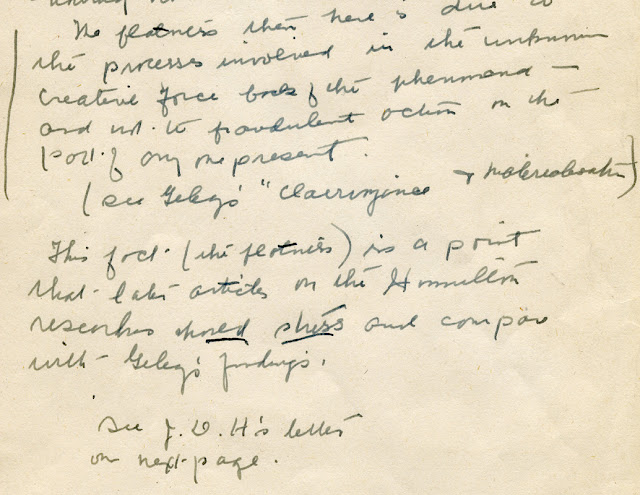 The flatness then here is due to
the processes involved in the unknown
creative force back of the phenomena —
and not to fraudulent action on the
part of any one present.
(see Geley's "Clairvoyance + Materialization)
This fact (the flatness) is a point
that later articles on the Hamilton
researches should stress and compare
with Geley's findings.
see J. D. H's letter
on next page.